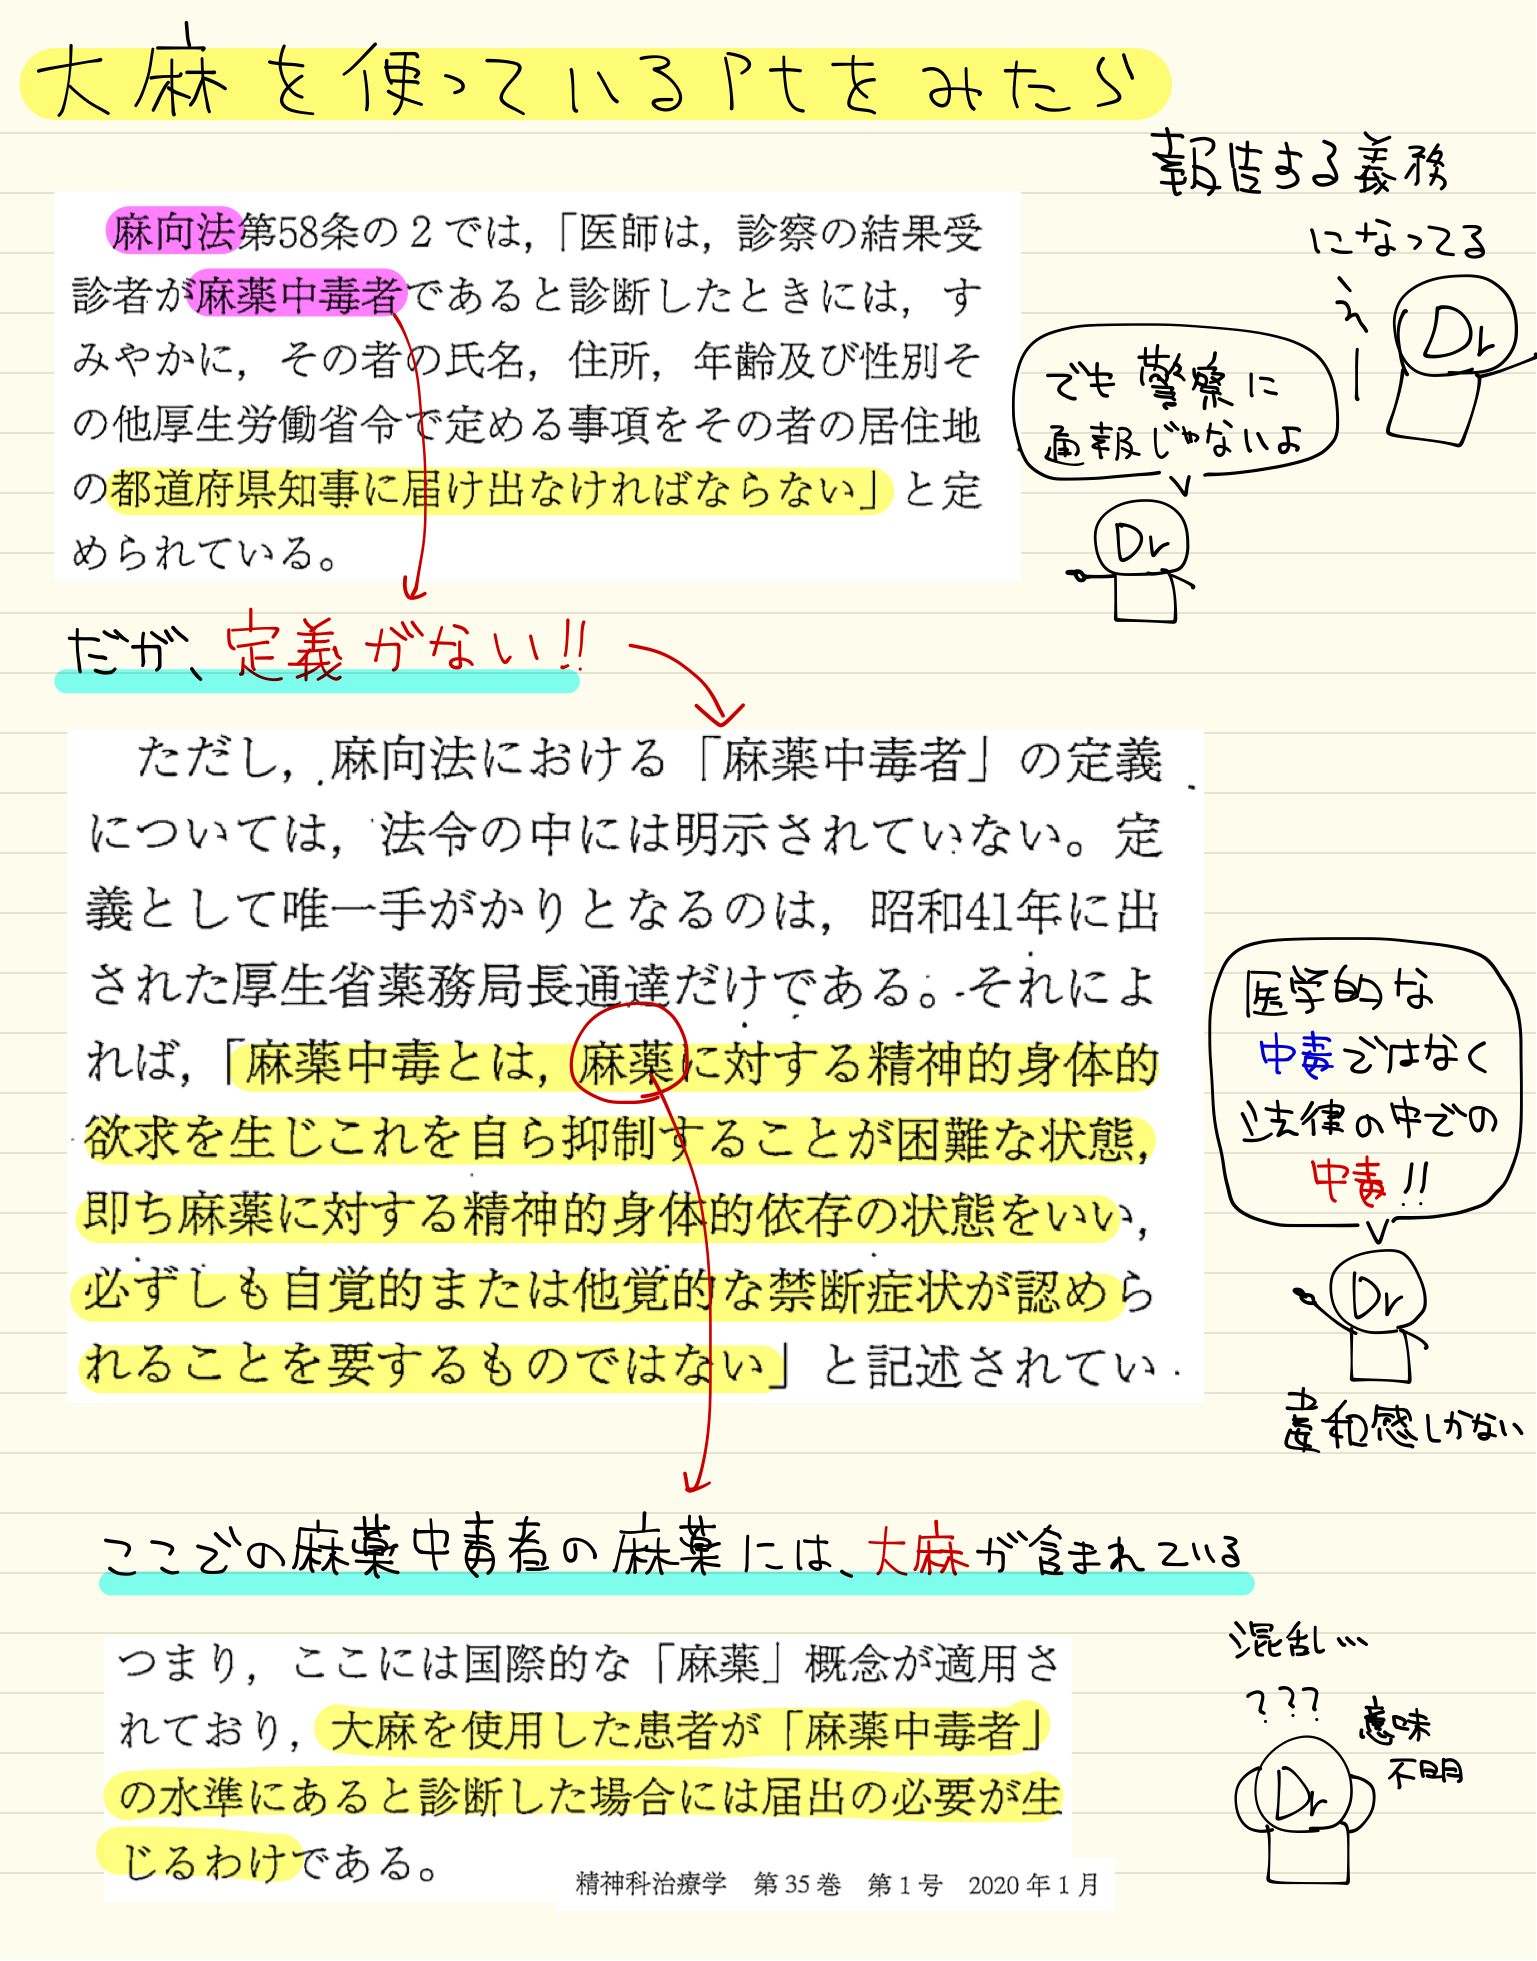 大麻を使っているPtをみたら
報告する義務
になってる
麻向法第58条の2では，「医師は，診察の結果受
診者が麻薬中毒者であると診断したときには，す
みやかに，その者の氏名，住所，年齢及び性別そ
の他厚生労働省令で定める事項をその者の居住地
の都道府県知事に届け出なければならない」と定
められている。
えー
Dr
でも警察に
通報じゃないよ
Dr
だが、定義がない!!
ただし，麻向法における「麻薬中毒者」の定義
については，法令の中には明示されていない。定
義として唯一手がかりとなるのは，昭和41年に出
された厚生省薬務局長通達だけである。それによ
れば，「麻薬中毒とは，麻薬に対する精神的身体的
欲求を生じこれを自ら抑制することが困難な状態，
即ち麻薬に対する精神的身体的依存の状態をいい，
必ずしも自覚的または他覚的な禁断症状が認めら
れることを要するものではない」と記述されてい
医学的な
中毒ではなく
法律の中での
中毒!!
Dr
違和感しかない
ここでの麻薬中毒者の麻薬には、大麻が含まれている
つまり，ここには国際的な「麻薬」概念が適用さ
れており，大麻を使用した患者が「麻薬中毒者」
の水準にあると診断した場合には届出の必要が生
じるわけである。
精神科治療学　第35巻　第1号　2020年1月
混乱…
???
意味
不明
Dr